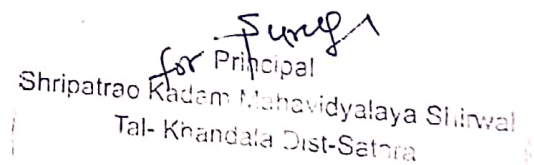 for Principal
Shripatrao Kadam Mahavidyalaya Shirwal
Tal- Khandala Dist-Satara